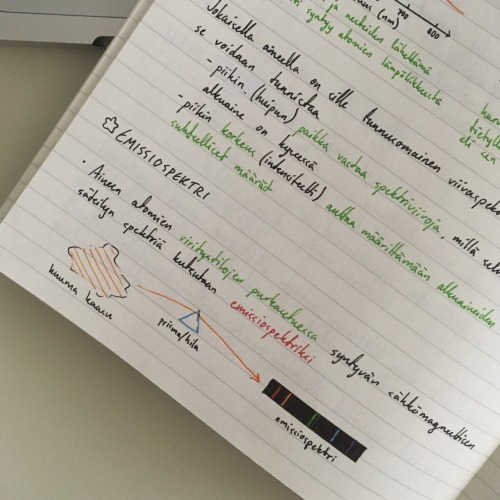 (nm) 700 800
ja aukeiden lähettämä
syntyy atomien lämpöliikkeestä
Jokaisella aineella on sille tunnusomainen viivaspek
se voidaan tunnistaa
- piikin (huipun) paikka vastaa spektriviivoja, millä
alkuaine on kyseessä
- piikin korkeus (intensiteetti) auttaa määrittämään alkuaineiden
suhteelliset määrät
EMISSIOSPEKTRI
• Aineen atomien viritystilojen purkautuessa syntyvän sähkömagneettisen
säteilyn spektriä kutsutaan emissiospektriksi
kuuma kaasu
prisma/hila
emissiospektri